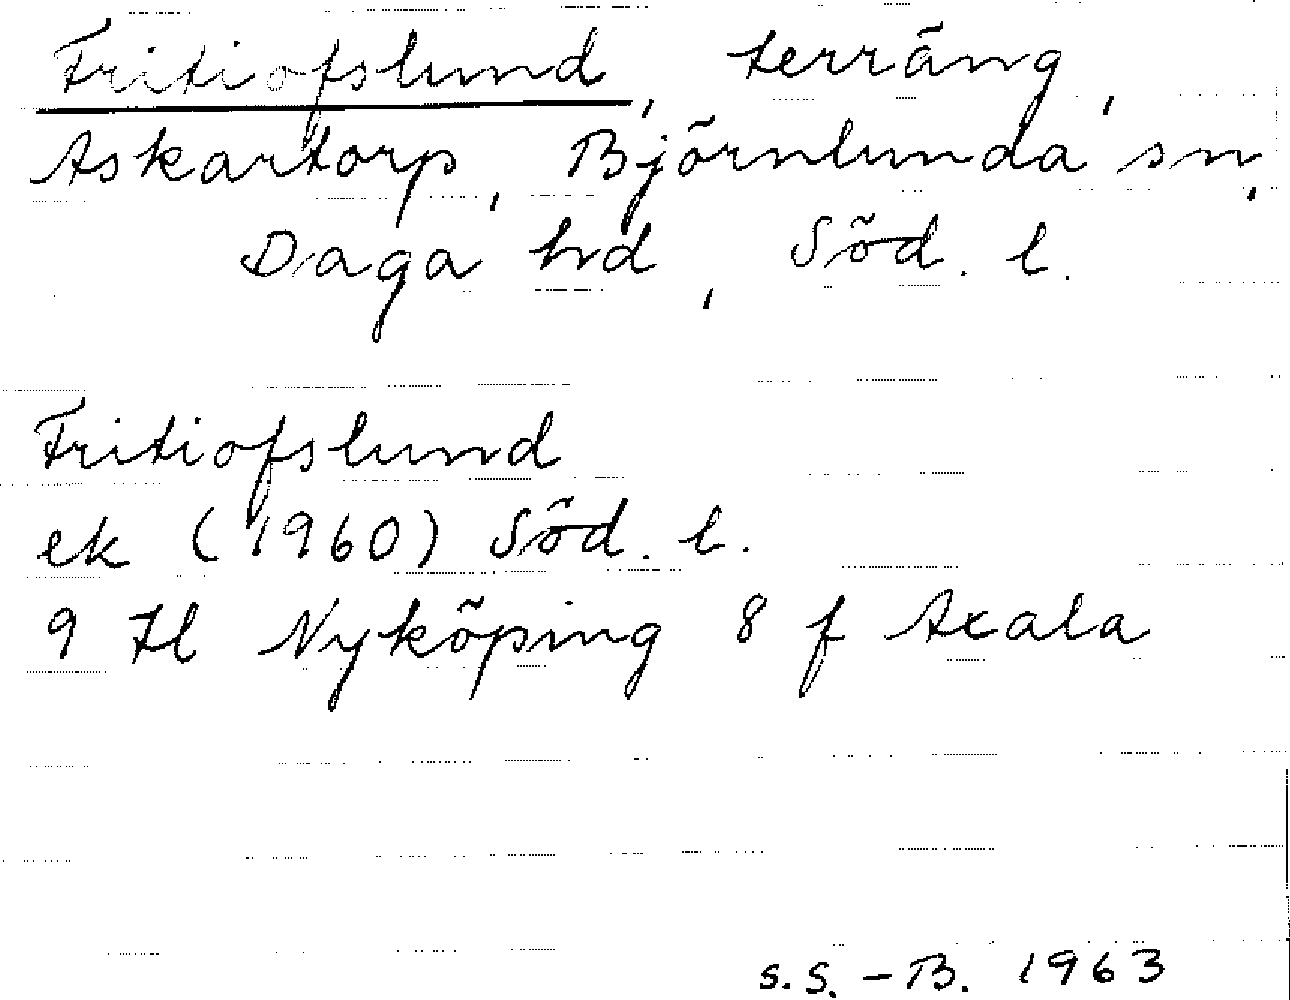 Fritiofslund, terräng,
Askartorp, Björnlunda sn,
Daga hd, Söd. l.
Fritiofslund
ek (1960) Söd. l.
9 H1 Nyköping 8 f Axala
S.S.-B. 1963